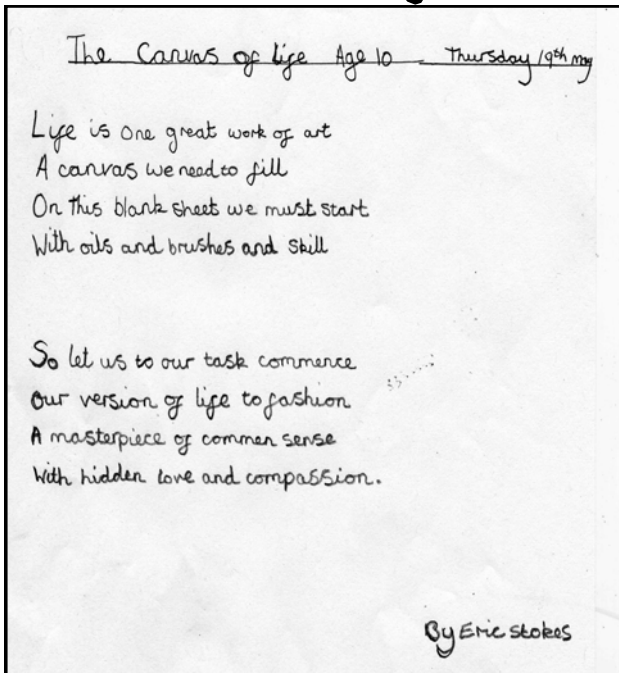 The Canvas of life Age 10 Thursday 19th may
Life is one great work of art
A canvas we need to fill
On this blank sheet we must start
With oils and brushes and skill
So let us to our task commence
Our version of life to fashion
A masterpiece of commen sense
With hidden love and compassion.
By Eric stokes